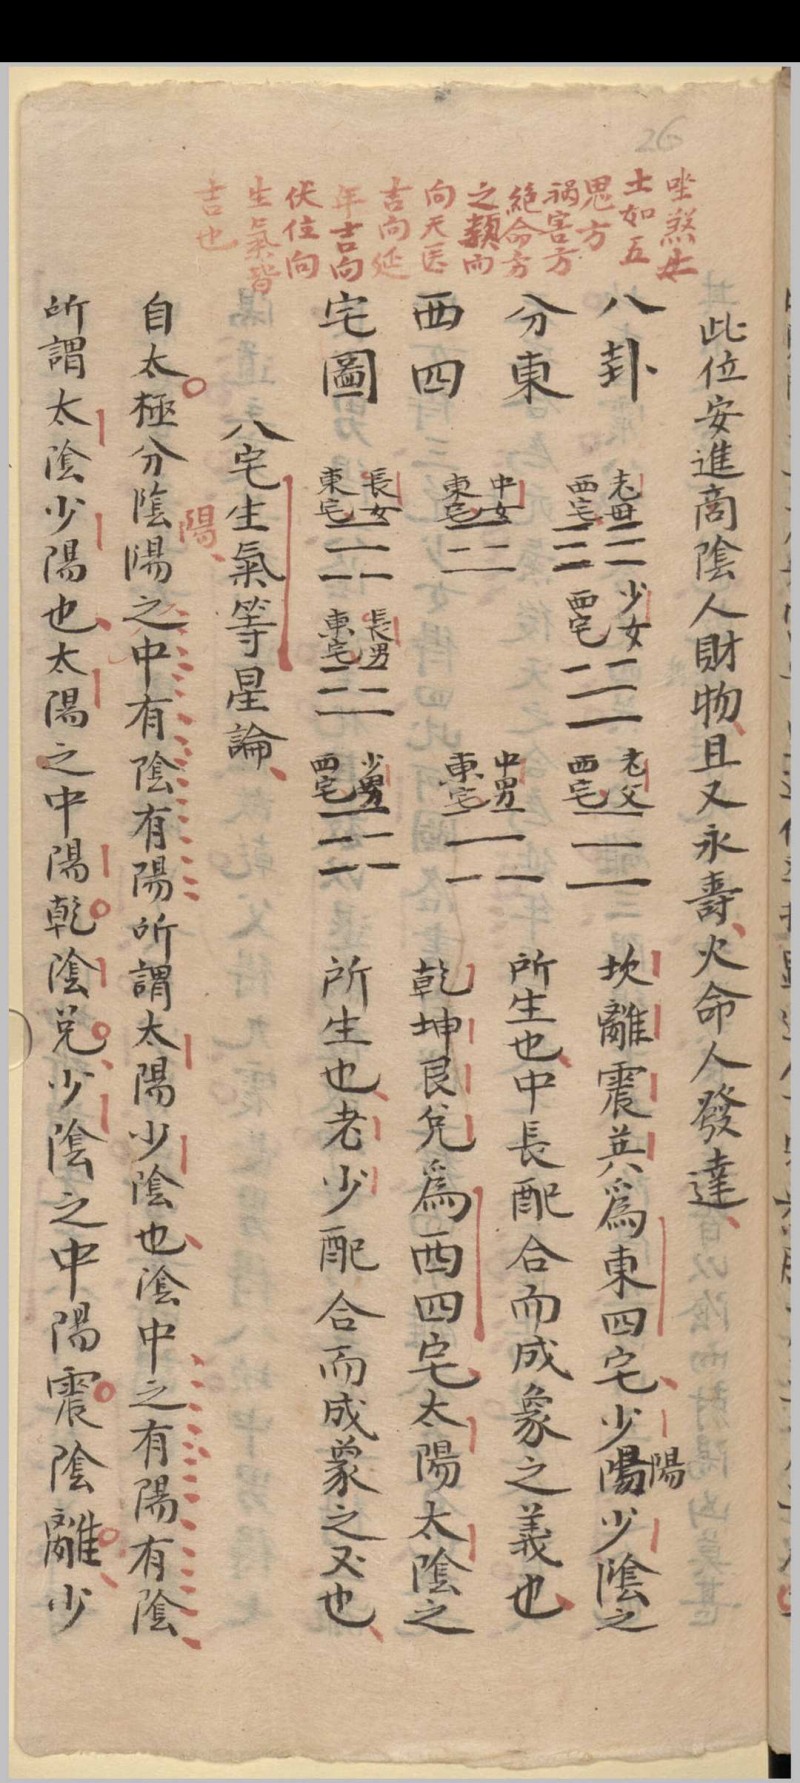 26
坐煞出
土如五
鬼方
禍害方
絕命方
之類而
向天医
吉向延
年吉向
伏位向
生氣皆
吉也
此位安進商陰人財物且又永壽火命人發達
八卦
分東
西四
宅圖
老母
西宅
少女
西宅
老父
西宅
中女
東宅
中男
東宅
長女
東宅
長男
東宅
少男
西宅
坎離震巽爲東四宅少陽少陰之
陽
所生也中長配合而成象之義也
乾坤艮兌爲西四宅太陽太陰之
所生也老少配合而成象之又也
八宅生氣等星論
自太極分陰陽之中有陰有陽所謂太陽少陰也陰中之有陽有陰
陽
所謂太陰少陽也太陽之中陽乾陰兌少陰之中陽震陰離少